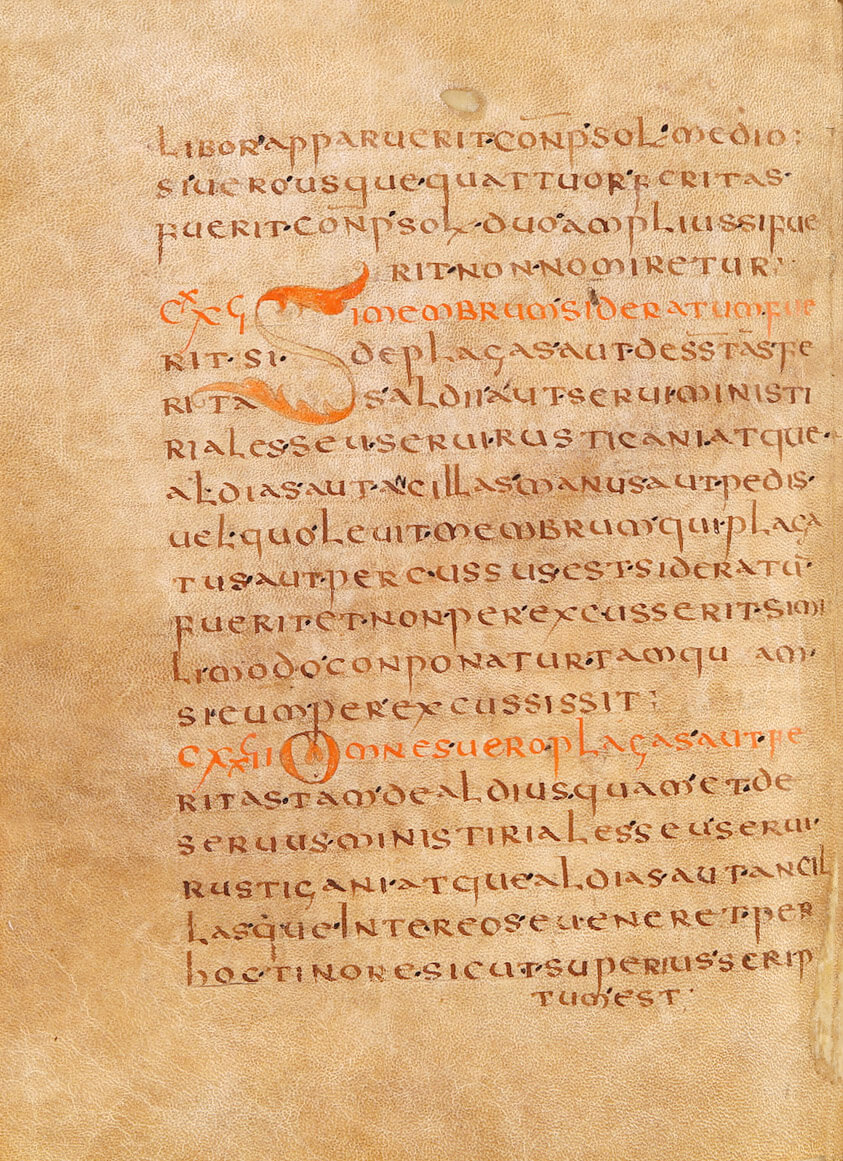 LIBOR·APPARUERIT·CON̄P·SOL·MEDIO;
SIUERO·USQUE·QUATTUOR·FERITAS·
FUERIT·CON̄P·SOL·DUO·AMPLIUS·SI FUE
RIT·NON·NOMIRETUR·
CXXCI SIMEMBRUM·SIDERATUM·FUE
RIT·SI·DEPLAGAS·AUT·DE SSTAS·FE
RITAS ALDII·AUT·SERUI·MINISTI
RIALES·SEU·SERUI·RUSTICANI·ATQUE·
ALDIAS·AUT·ANCILLAS·MANUS·AUT·PEDIS·
UEL·QUOLEUIT·MEMBRUM·QUI·PLAGA
TUS·AUT·PERCUSSUS·EST·SIDERATŪ·
FUERIT·ET·NON·PER·EXCUSSERIT·SIMI
LI·MODO·CONPONATUR·TAMQUAM·
SI CUM·PER·EXCUSSISSIT;
CXXCII OMNES·UERO·PLAGAS·AUT·FE
RITAS·TAM·DE·ALDIUS·QUAM·ET·DE
SERUUS·MINISTIRIALES·SEU·SERUI·
RUSTIGANI·ATQUE·ALDIAS·AUT·ANCIL
LAS·QUE·INTER·EOS·EUENERET·PER
HOC·TINORE·SICUT·SUPERIUS·SCRIP
TUM·EST·